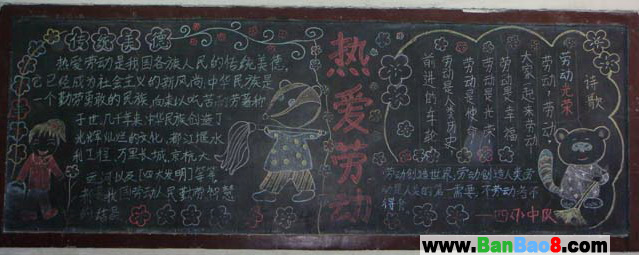 传统美德
热爱劳动是我国各族人民的传统美德,
它已经成为社会主义的新风尚,中华民族是
一个勤劳勇敢的民族,向来以吃苦耐劳著称
于世,几千年来中华民族创造了
光辉灿烂的文化,都江堰水
利工程,万里长城,京杭大
运河以及「四大发明」等等
我国劳动人民勤劳智慧
的结晶
热爱劳动
诗歌
劳动光荣
劳动,劳动,
大家一起来劳动
劳动是幸福
劳动是光荣
劳动是使命
劳动是人类历史
前进的车轮
劳动创造世界,劳动创造人类,劳
动是人类的第一需要,不劳动者不
得食
——四(7)中队
www.BanBao8.com